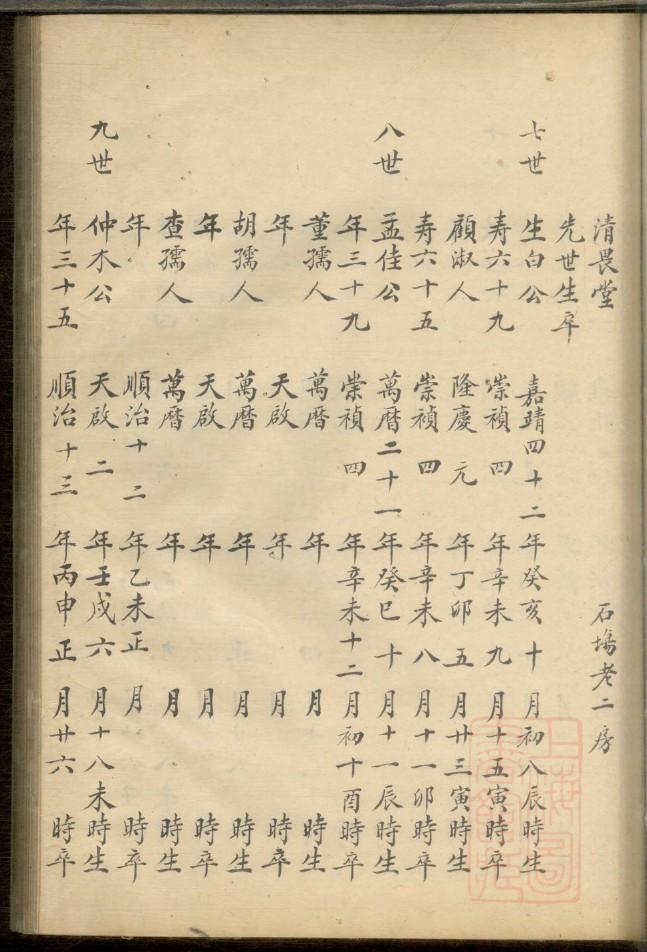 清畏堂 石塲老二房
先世生卒
七世 生白公 嘉靖四十二年癸亥十月初八辰時生
寿六十九 崇禎四年辛未九月十五寅時卒
顧淑人 隆慶元年丁卯五月廿三寅時生
寿六十五 崇禎四年辛未八月十一卯時卒
八世 孟佳公 萬曆二十一年癸巳十月十一辰時生
年三十九 崇禎四年辛未十二月初十酉時卒
董孺人 萬曆年月時生
年 天啟年月時卒
胡孺人 萬曆年月時生
年 天啟年月時卒
查孺人 萬曆年月時生
年 順治十二年乙未正月時卒
九世 仲木公 天啟二年壬戌六月十八未時生
年三十五 順治十三年丙申正月廿六時卒